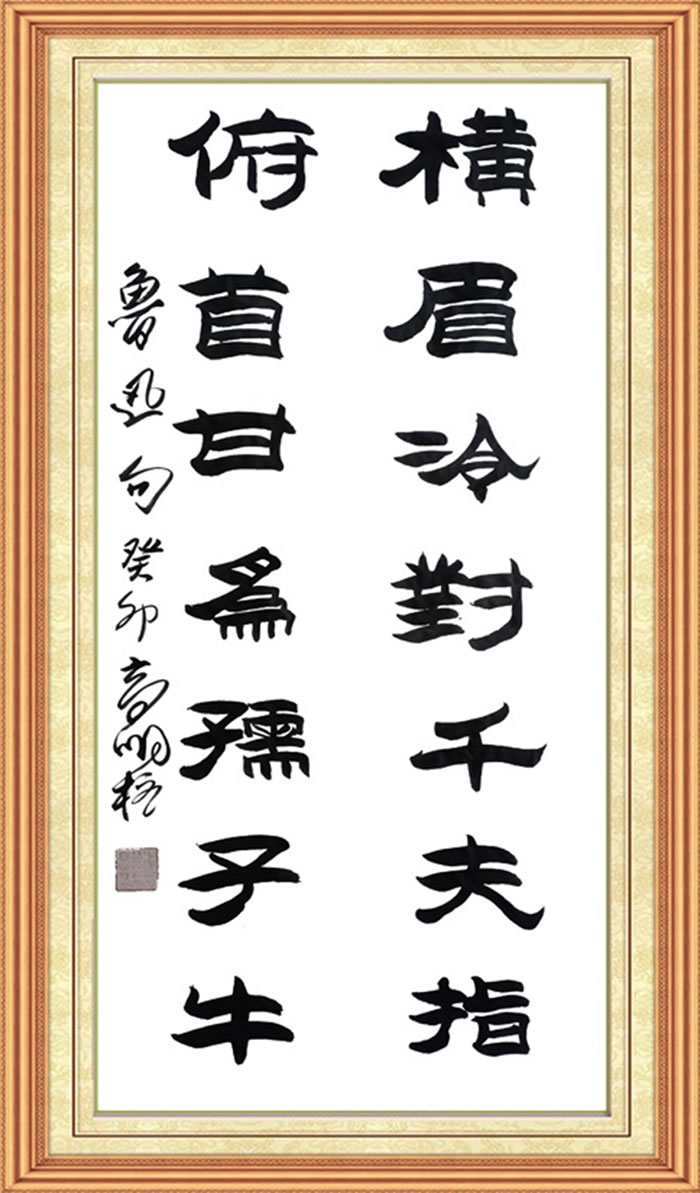 橫眉冷對千夫指
俯首甘為孺子牛
魯迅句 癸卯 高明